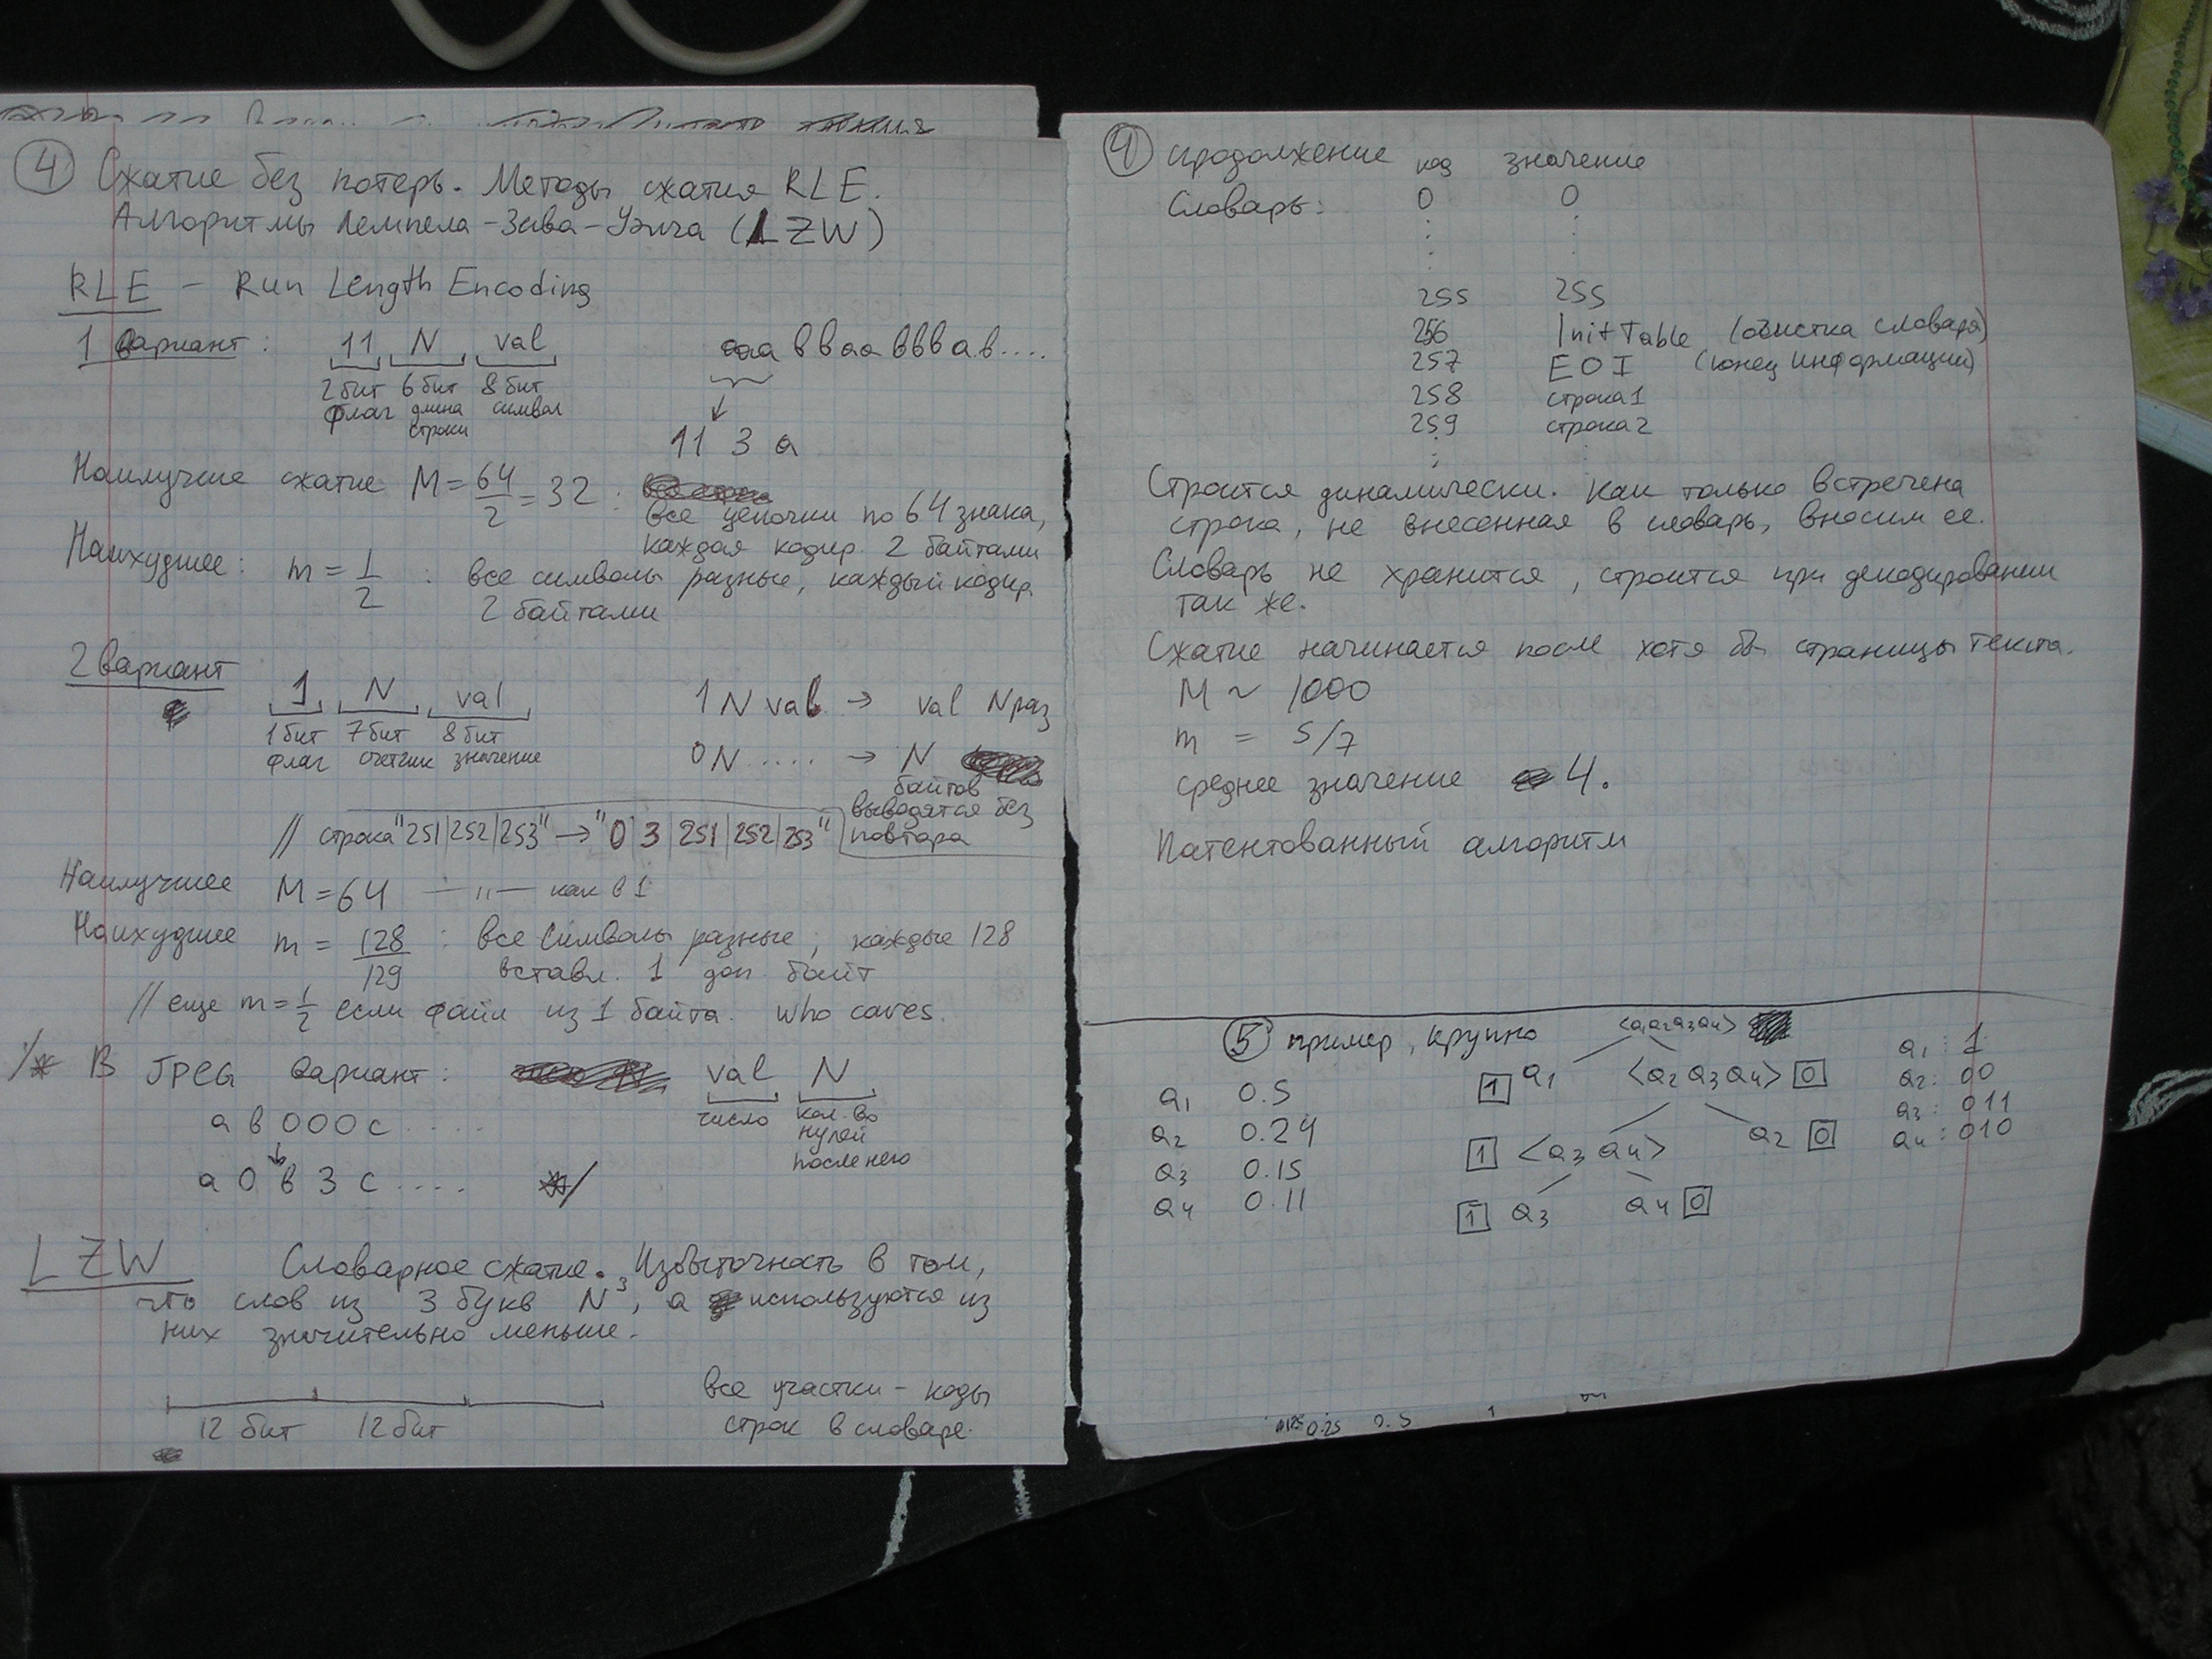 ④ Сжатие без потерь. Методы сжатия RLE.
Алгоритмы Лемпела-Зива-Уэлча (LZW)
RLE - Run Length Encoding
1 вариант: 11 N val
2 бит 6 бит 8 бит
флаг длина символ
строки
аааввааввва.в....
11 3 а
Наилучшее сжатие M = 64/2 = 32 :
все цепочки по 64 знака,
каждая кодир. 2 байтами
Наихудшее: m = 1/2 : все символы разные, каждый кодир.
2 байтами
2 вариант
1 N val
1 бит 7 бит 8 бит
флаг счетчик значение
1 N val → val N раз
0 N ..... → N
байтов
выводятся без
повтора
// строка "251|252|253" → "0 3|251|252|253"
Наилучшее M = 64 —"— как в 1
Наихудшее m = 128/129 : все символы разные, каждые 128
вставл. 1 доп. байт
// еще m = 1/2 если файл из 1 байта. who cares.
/* В JPEG вариант: val N
число кол-во
нулей
после него
а в 0 0 0 с ....
а 0 в 3 с .... */
LZW Словарное сжатие. Избыточность в том,
что слов из 3 букв N³, а используются из
них значительно меньше.
12 бит 12 бит
все участки - коды
строк в словаре.
④ продолжение код значение
Словарь: 0 0
255 255
256 InitTable (очистка словаря)
257 EOI (конец информации)
258 строка 1
259 строка 2
Строится динамически. Как только встречена
строка, не внесенная в словарь, вносим ее.
Словарь не хранится, строится при декодировании
так же.
Сжатие начинается после хотя бы страницы текста.
M ~ 1000
m = 5/7
среднее значение 4.
Патентованный алгоритм
⑤ пример, крупно
a₁ 0.5
a₂ 0.24
a₃ 0.15
a₄ 0.11
<a₁a₂a₃a₄>
1 a₁ <a₂ a₃ a₄> 0
1 <a₃ a₄> a₂ 0
1 a₃ a₄ 0
a₁ : 1
a₂ : 00
a₃ : 011
a₄ : 010
0.25 0.5 1